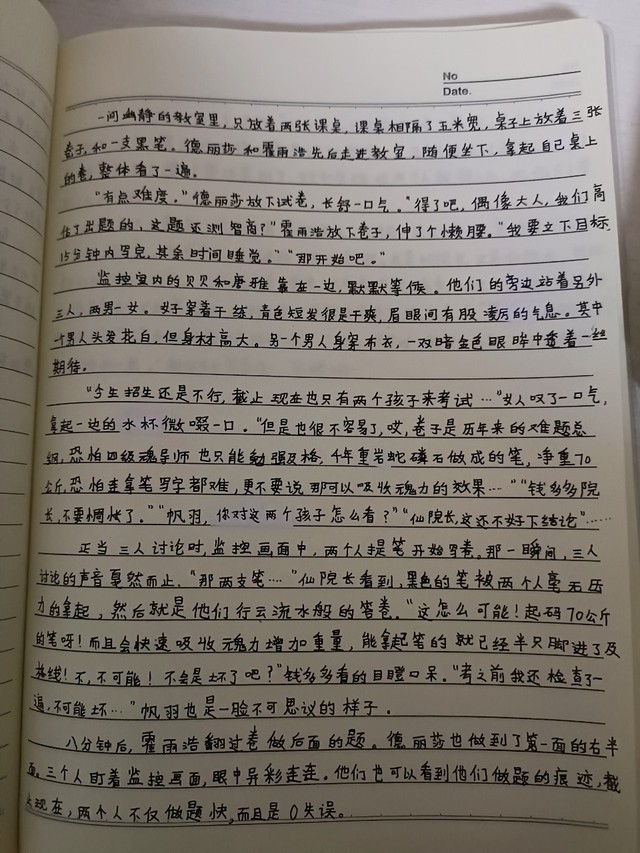 No
Date.
一间幽静的教室里，只放着两张课桌，课桌相隔了五米宽，桌子上放着三张
卷子，和一支黑笔。德丽莎和霍雨浩先后走进教室，随便坐下，拿起自己桌上
的卷，整体看了一遍。
“有点难度。”德丽莎放下试卷，长舒一口气。“得了吧，偶像大人，我们高
估了出题的、这题还测智商？”霍雨浩放下卷子，伸了个懒腰。“我要立下目标，
15分钟内写完，其余时间睡觉。”“那开始吧。”
监控室内的贝贝和唐雅靠在一边，默默等候。他们的旁边站着另外
三人，两男一女。女子穿着干练，青色短发很是干爽，眉眼间有股凌厉的气息。其中
一个男人头发花白，但身材高大。另一个男人身穿布衣，一双暗金色眼眸中透着一丝
期待。
“今年招生还是不行，截止现在也只有两个孩子来考试…”女人叹了一口气，
拿起一边的水杯微啜一口。“但是也很不容易了，哎，卷子是历年来的难题总
纲，恐怕四级魂导师也只能勉强及格，千年重岩蛇磷石做成的笔，净重70
公斤，恐怕连拿笔写字都难，更不要说那可以吸收魂力的效果…”“钱多多院
长，不要惆怅了。”“帆羽，你对这两个孩子怎么看？”“仙院长，这还不好下结论”……
正当三人讨论时，监控画面中，两个人提笔开始写卷。那一瞬间，三人
讨论的声音戛然而止。“那两支笔……”仙院长看到，黑色的笔被两个人毫无压
力的拿起，然后就是他们行云流水般的答卷。“这怎么可能！起码70公斤
的笔呀！而且会快速吸收魂力增加重量，能拿起笔的就已经半只脚进了及
格线！不，不可能！不会是坏了吧？”钱多多看的目瞪口呆。“考之前我还检查了一
遍，不可能坏…”帆羽也是一脸不可思议的样子。
八分钟后，霍雨浩翻过卷做后面的题。德丽莎也做到了第一面的右半
面。三个人盯着监控画面，眼中异彩连连。他们也可以看到他们做题的痕迹，截
止现在，两个人不仅做题快，而且是0失误。